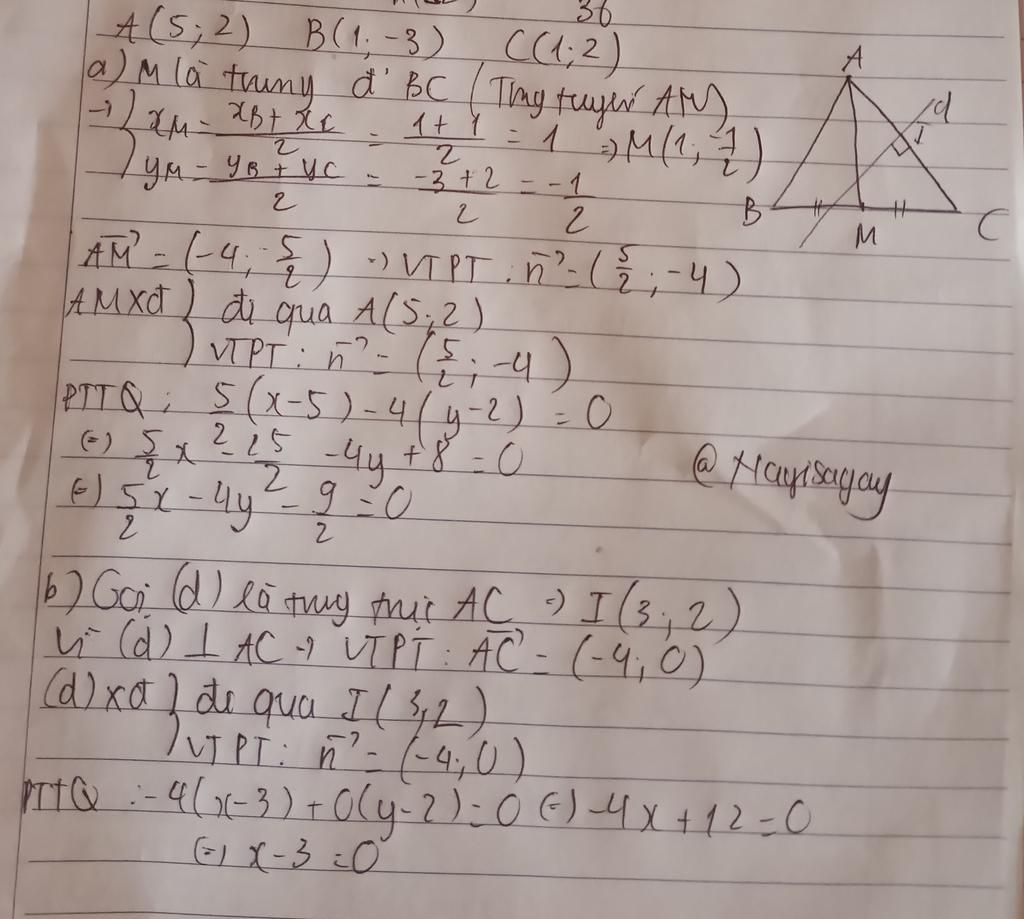 36
A(5;2) B(1;-3) C(1;2)
a) M là trung đ' BC (Trng tuyến AM)
→ } xM = (xB + xC)/2 = (1+1)/2 = 1 ⇒ M(1; -1/2)
yM = (yB + yC)/2 = (-3+2)/2 = -1/2
A
d
I
B
M
C
AM→ = (-4; -5/2) → VTPT: n→ = (5/2; -4)
AM xđ } đi qua A(5;2)
VTPT: n→ = (5/2; -4)
PTTQ: 5/2(x-5) - 4(y-2) = 0
(=) 5/2x - 25/2 - 4y + 8 = 0
@Hayisagay
(=) 5/2x - 4y - 9/2 = 0
b) Gọi (d) là trung trực AC ⇒ I(3;2)
Vì (d) ⊥ AC → VTPT: AC→ = (-4;0)
(d) xđ } đi qua I(3;2)
VTPT: n→ = (-4;0)
PTTQ: -4(x-3) + 0(y-2) = 0 (=) -4x + 12 = 0
(=) x - 3 = 0